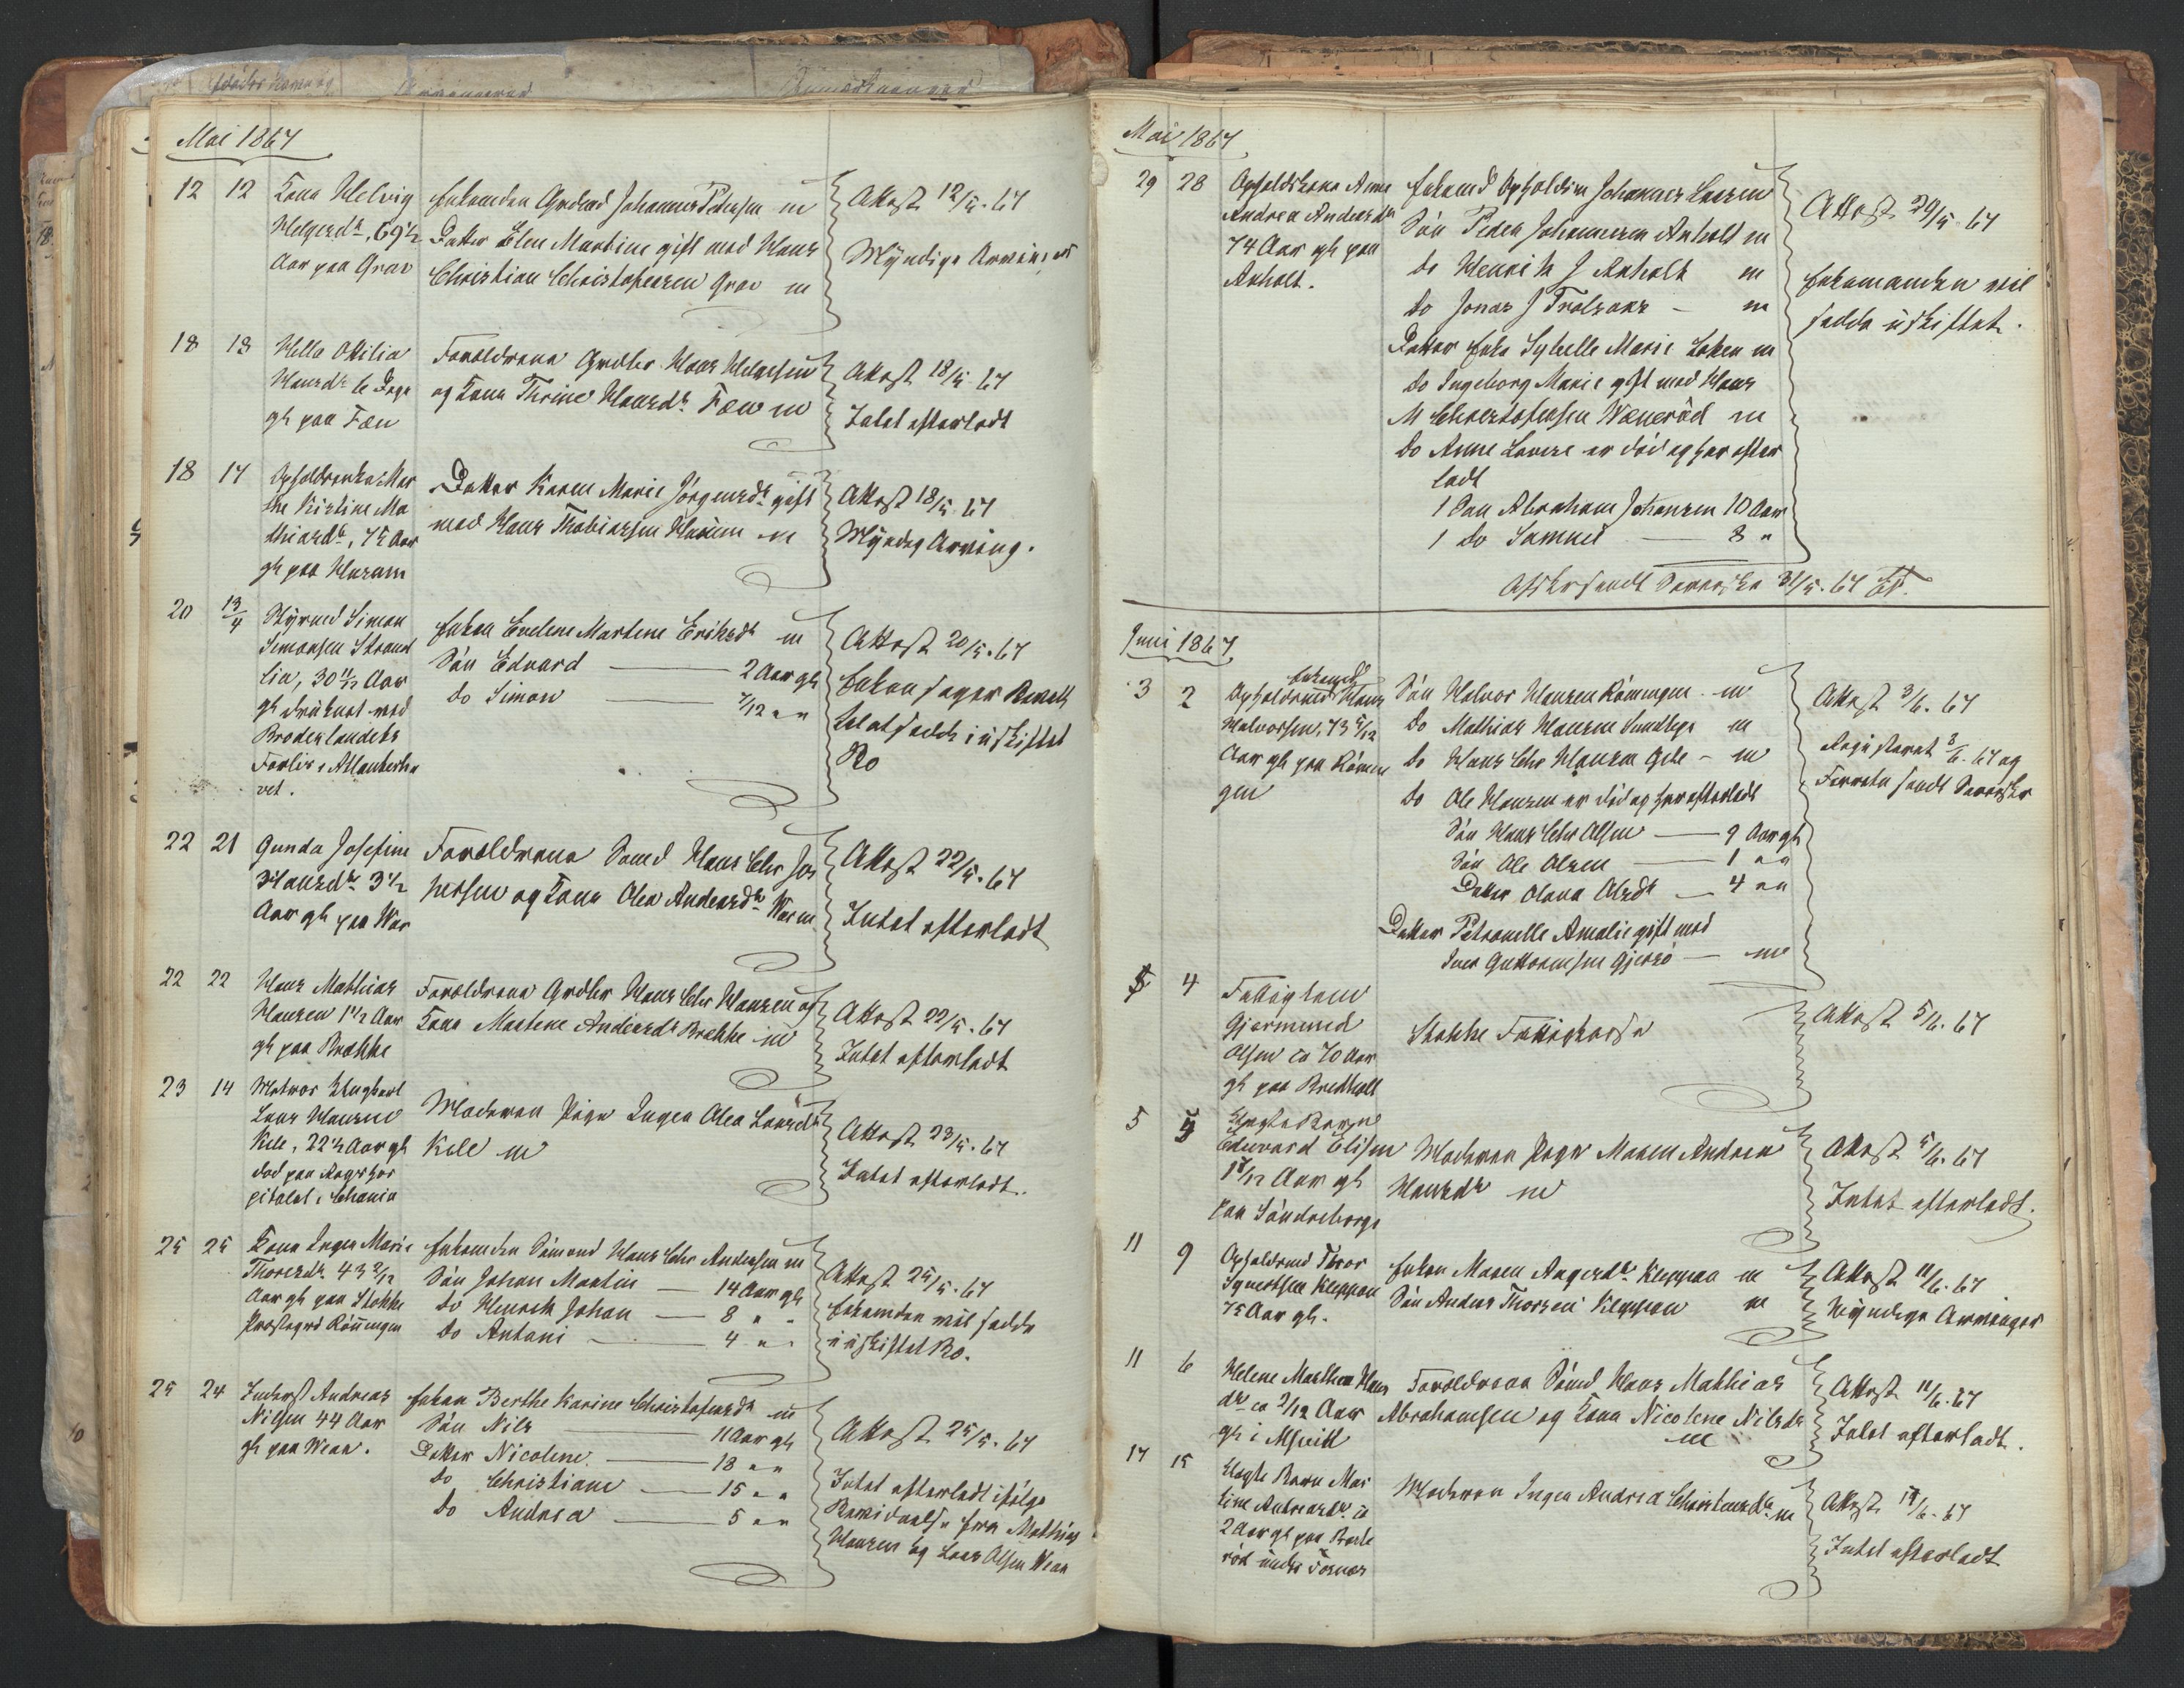 Mai 1867
12 12 Kona Helvig
Helgesdr, 69 1/2
Aar paa Grav
Enkemanden Grdmd Johannes Pedersen m
Datter Elen Martine gift med Hans
Christian Christofersen Grav m
Attest 12/5. 67
Myndige Arvinger
18 13 Hella Otilia
Hansdr 6 Dage
gl paa Fæn
Forældrene Grdbr Hans Helgesen
og Kona Thrine Hansdr Fæn m
Attest 18/5 67
Intet efterladt
18 17 Opholdsenke Mar
the Kistine Ma
thiasdr, 75 Aar
gl paa Husum
Datter Karen Marie Jörgensdr gift
med Hans Thobiassen Husum m
Attest 18/5. 67
Myndig Arving.
20 13/4 Styrmd Simon
Simonsen Strand
lie, 30 11/12 Aar
gl druknet ved
Forlis i Atlanterha
vet.
Enken Evelene Martene Eriksdr m
Sön Edvard — 2 Aar gl
do Simon — 7/12 " "
Attest 20/5. 67
Enken
sidde i uskiftet
Bo
22 21 Gunda Josefine
Hansdr 3 1/2
Aar gl paa
Forældrene Sømd Hans Chr
og Kona Olea Andersdr
Attest 22/5. 67
Intet efterladt
22 22 Hans Mathias
Hansen 1 1/2 Aar
gl paa Brække
Forældrene Grdbr Hans Chr Hansen og
Kona Martene Andersdr Brække m
Attest 22/5. 67
Intet efterladt
23 14 Matros
Lars Hansen
Kile, 22 1/2 Aar gl
död paa
pitalet i
Moderen Pige Inger Olea Larsdr
Kile m
Attest 23/5. 67
Intet efterladt.
25 25 Kona Inger Marie
Thoresdr. 43 2/12
Aar gl paa Stokke
Præstegrd Röningen
Enkemanden Sömand Hans Chr Andersen m
Sön Johan Martin — 14 Aar gl
do Henrik Johan — 8 " "
do Antoni — 4 " "
Attest 25/5. 67
Enkemanden vil sidde
i uskiftet Bo.
25 24 Inderst Andreas
Nilsen 44 Aar
gl paa Wear.
Enken Berthe Karine Christofersdr m
Sön Nils — 11 Aar gl
Datter Nicoline — 18 " "
do Christiane — 15 " "
do Andrea — 5 " "
Attest 25/5. 67
Intet efterladt ifölge
fra Mathias
Hansen og Lars Olsen Wear
Mai 1867
29 28 Opholdskone Anne
Andrea Andersdr
74 Aar gl paa
Anholt.
Enkemd Opholdsm Johannes Larsen
Sön Peder Johannesen Anholt m
do Henrik J Anholt m
do Jonas J Trolsaas — m
Datter Enke Sybelle Marie Laken m
do Ingeborg Marie gift med Hans
M Christofersen Wennerød m
do Anne Lovise er död og har efter
ladt
1 Sön Abraham Johansen 10 Aar
1 do Samuel — 8 "
Attest 29/5. 67
Enkemanden vil
sidde uskiftet.
31/5. 67
Juni 1867
3 2 Enkemd
Opholdsmd Hans
Halvorsen, 73 5/12
Aar gl paa Rönin
gen
Sön Halvor Hansen Röningen m
do Mathias Hansen Sundby m
do Hans Chr Hansen — m
do Ole Hansen er död og har efterladt
Sön Hans Chr Olsen — 9 Aar gl
Sön Ole Olsen — 1 " "
Datter Olava Olsdr — 4 " "
Datter Petronelle Amalie gift med
Iver Guttormsen Gjersö — m
Attest 3/6. 67
Registeret 3/6. 67 og
5 4 Fattiglem
Gjermund
Olsen ca 70 Aar
gl paa Bredholt
Stokke Fattigkasse
Attest 5/6. 67
5 4 Uægte Barn
Edevard Elisen
Aar gl
paa Söndreborge
Moderen Pige Maren Andrea
Hansdr m
Attest 5/6. 67
Intet efterladt.
11 9 Opholdsmd Thor
Syvertsen Kleppan
75 Aar gl.
Enken Maren Aagesdr Kleppan m
Sön Anders Thorsen Kleppan m
Attest 11/6. 67
Myndige Arvinger
11 6 Helene Mathea Hans
dr ca 2/12 Aar
gl i Melsvik
Forældrene Sömd Hans Mathias
Abrahamsen og Kona Nicolene Nilsdr
m
Attest 11/6. 67
Intet efterladt.
17 15 Uægte Barn Mar
tine Andreasdr ca
2 Aar gl paa
röd under
Moderen Inger Andrea Christensdr m
Attest 17/6. 67
Intet efterladt